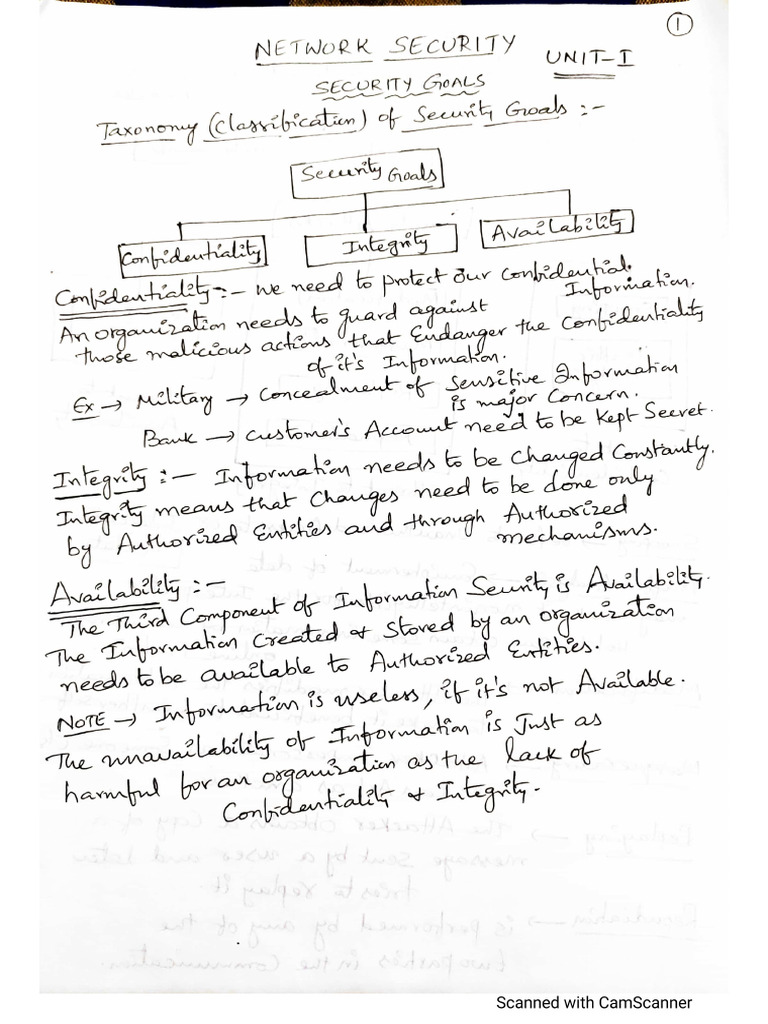 1
NETWORK SECURITY
UNIT-I
SECURITY GOALS
Taxonomy (Classification) of Security Goals :-
Security Goals
Confidentiality
Integrity
Availability
Confidentiality :- We need to protect our Confidential
Information.
An organization needs to guard against
those malicious actions that Endanger the Confidentiality
of it's Information.
Ex → Military → Concealment of Sensitive Information
is major Concern.
Bank → Customer's Account need to be Kept Secret.
Integrity :- Information needs to be Changed Constantly.
Integrity means that Changes need to be done only
by Authorized Entities and through Authorized
mechanisms.
Availability :-
The Third Component of Information Security is Availability.
The Information Created & Stored by an organization
needs to be available to Authorized Entities.
NOTE → Information is useless, if it's not Available.
The unavailability of Information is Just as
harmful for an organization as the lack of
Confidentiality & Integrity.
Replaying → The Attacker obtains a Copy of a
message sent by a user and later
tries to replay it.
Repudiation → is performed by any of the
two parties in the Communication.
Scanned with CamScanner